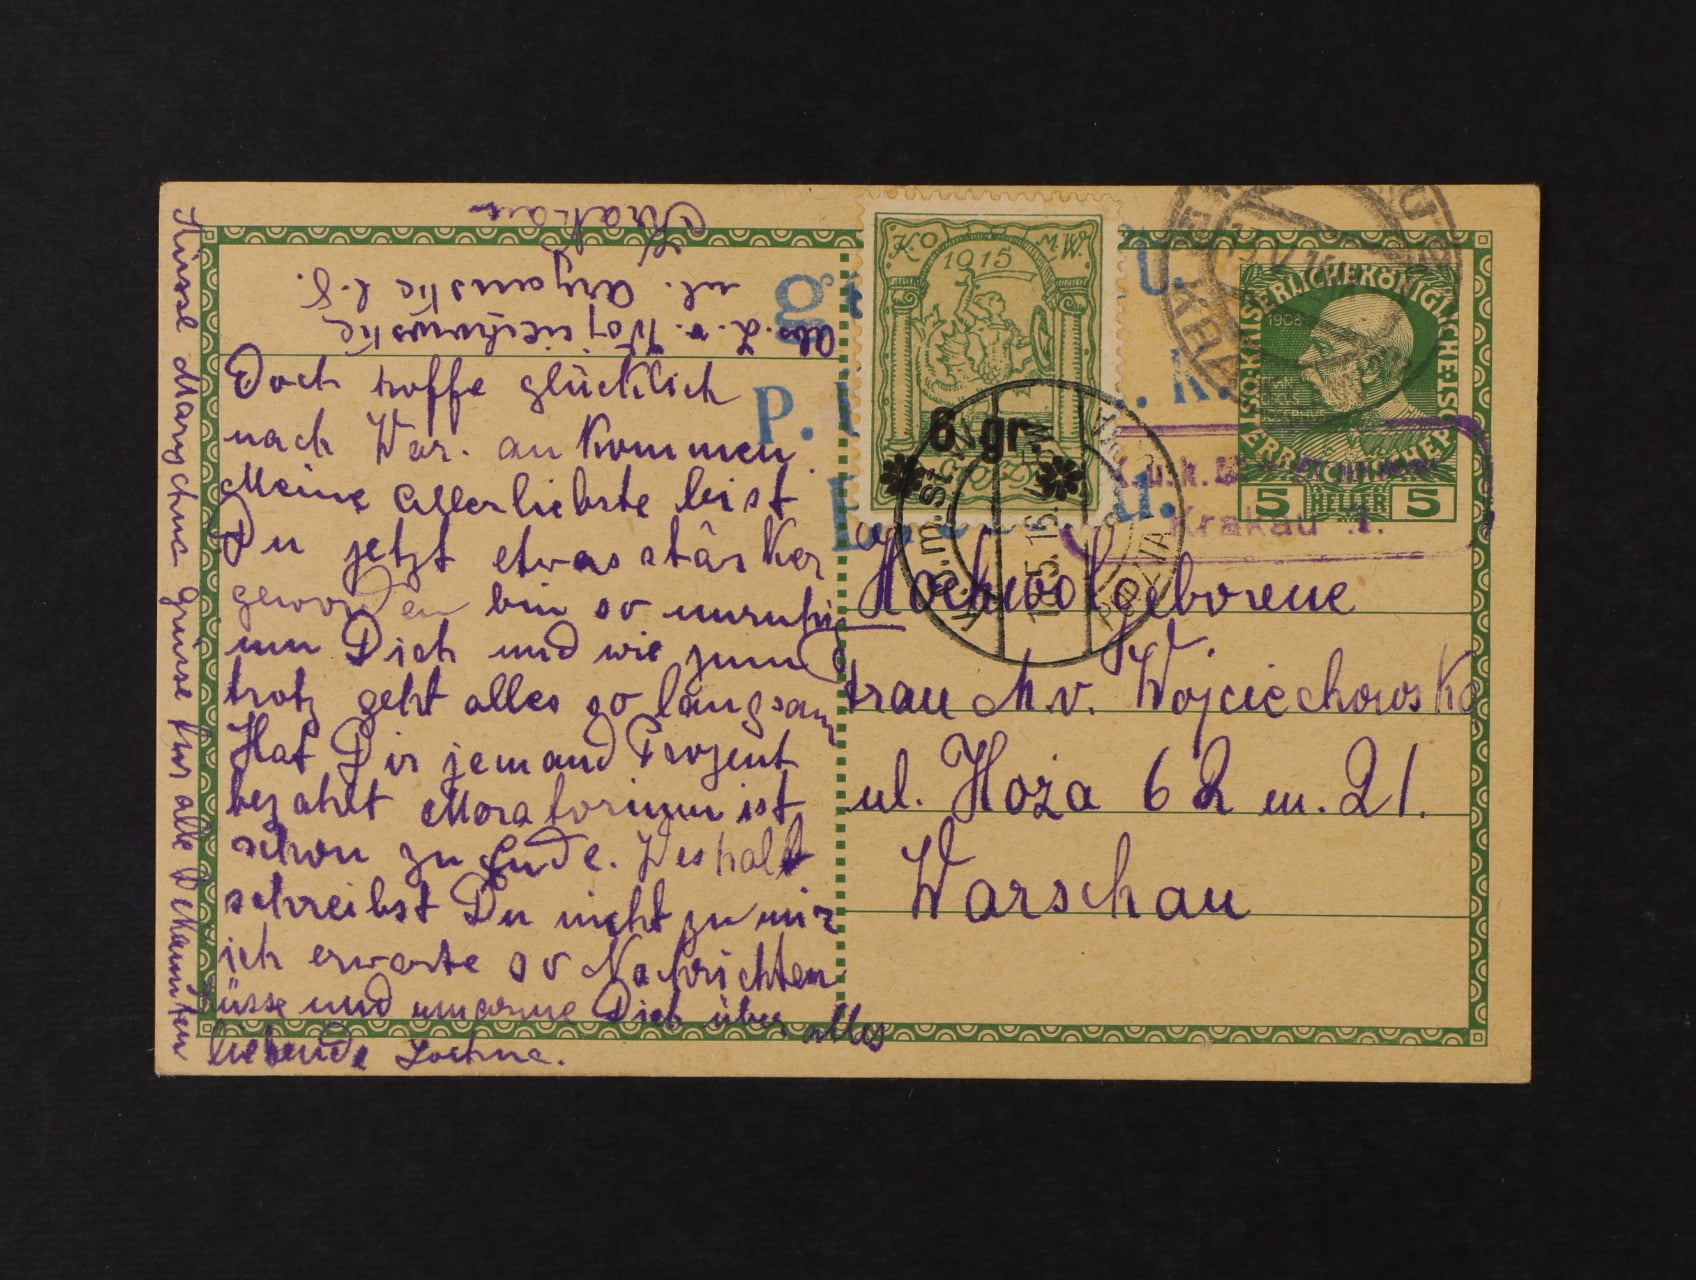 Krakau
ul. Aryanska l. 8.
Abs. L. v. Wojciechowska
Doch hoffe glücklich
nach War. an kommen
Meine Allerliebste bist
Du jetzt etwas stärker
geworden bin so unruhig
um Dich und wie zum
trotz geht alles so langsam
Hat Dir jemand Prozent
bezahlt Moratorium ist
schon zu Ende. Weshalb
schreibst Du nicht zu mir
ich erwarte so Nachrichten
Küsse und umarme Dich über alles
liebende
Küsse grüsse für alle Bekannten
KO M.W.
1915
6 gr.
K.O.m.st.
WARSZAWA
KAISERLICHE KÖNIGLICHE
1908
ÖSTERREICHISCHE POST
5 HELLER 5
KRAKAU
P.
U.
K.
K.u.k.
Krakau 1.
Hochwolgeborene
Frau M. v. Wojciechowska
ul. Hoża 62 m. 21.
Warschau